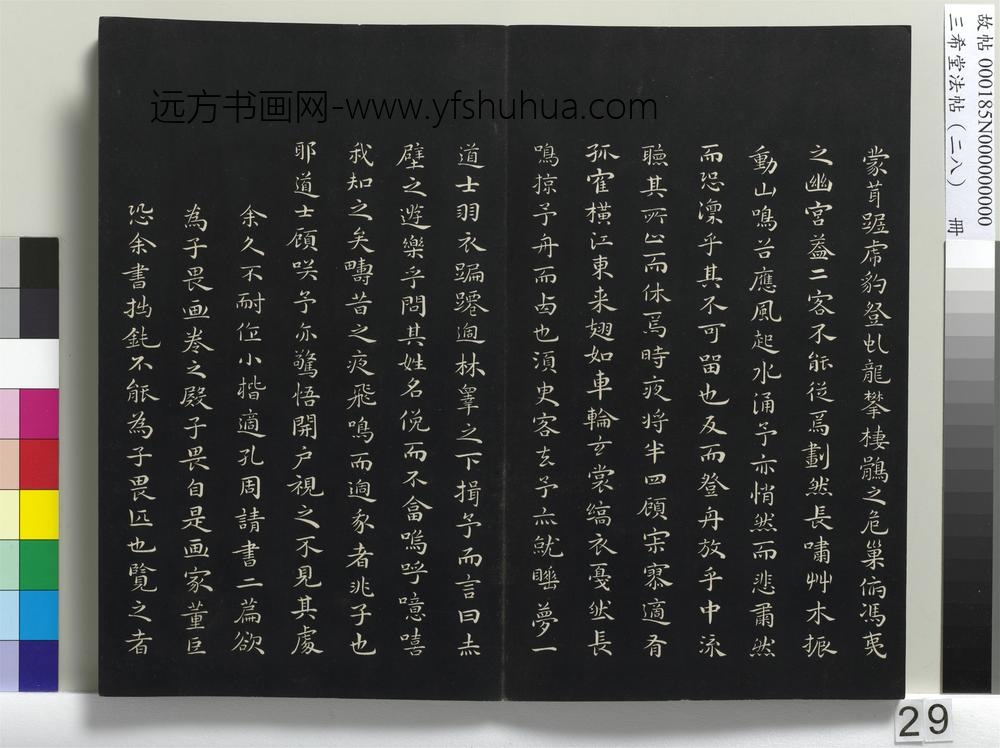 故帖 000185N000000000
三希堂法帖（二八） 冊
远方书画网-www.yfshuhua.com
蒙茸踞虎豹登虬龍攀棲鶻之危巢俯馮夷
之幽宮盖二客不能從焉劃然長嘯艸木振
動山鳴谷應風起水涌予亦悄然而悲肅然
而恐凜乎其不可留也反而登舟放乎中流
聽其所止而休焉時夜將半四顧寂寥適有
孤隺橫江東来翅如車輪玄裳縞衣戛然長
鳴掠予舟而西也須臾客去予亦就睡夢一
道士羽衣蹁躚過林皋之下揖予而言曰赤
壁之遊樂乎問其姓名俛而不答嗚呼噫嘻
我知之矣疇昔之夜飛鳴而過我者非子也
耶道士顧咲予亦驚悟開戶視之不見其處
余久不耐作小楷適孔周請書二篇欲
為子畏画卷之殿子畏自是画家董巨
恐余書拙鈍不能為子畏匹也覽之者
29